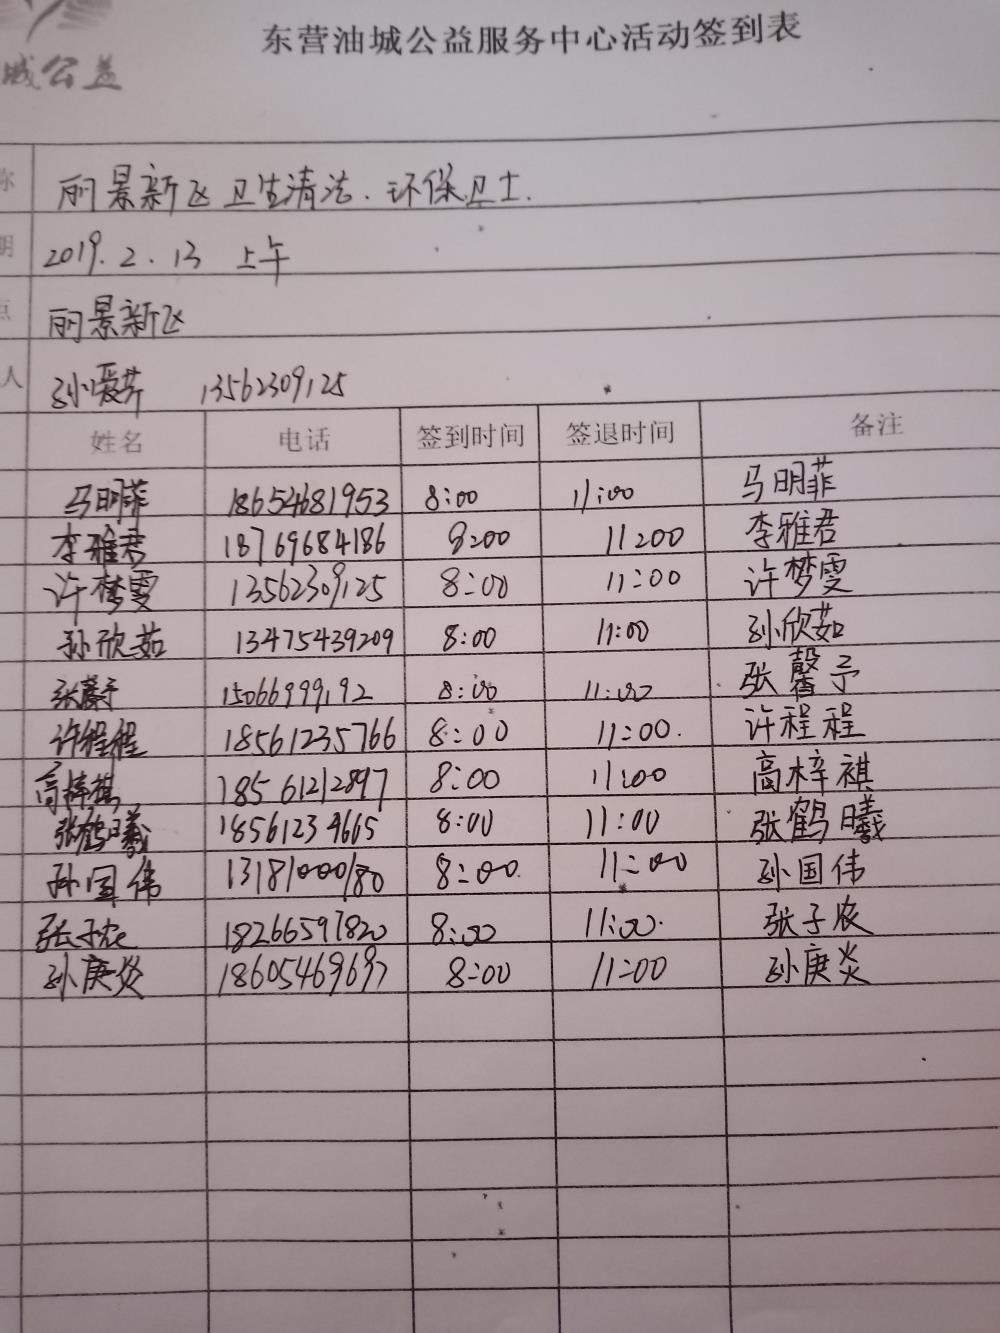 东营油城公益服务中心活动签到表
城公益
称 丽景新区卫生清洁.环保卫士.
期 2019.2.13 上午
点 丽景新区
人 孙爱芹 13562309125
姓名 电话 签到时间 签退时间 备注
马明菲 18654681953 8:00 11:00 马明菲
李雅君 18769684186 8:00 11:00 李雅君
许梦雯 13562309125 8:00 11:00 许梦雯
孙欣茹 13475439209 8:00 11:00 孙欣茹
张馨予 15066999192 8:00 11:00 张馨予
许程程 18561235766 8:00 11:00. 许程程
高梓祺 18561212897 8:00 11:00 高梓祺
张鹤曦 18561234665 8:00 11:00 张鹤曦
孙国伟 13181000180 8:00. 11:00 孙国伟
张子农 18266591820 8:00 11:00. 张子农
孙庚炎 18605469697 8:00 11:00 孙庚炎